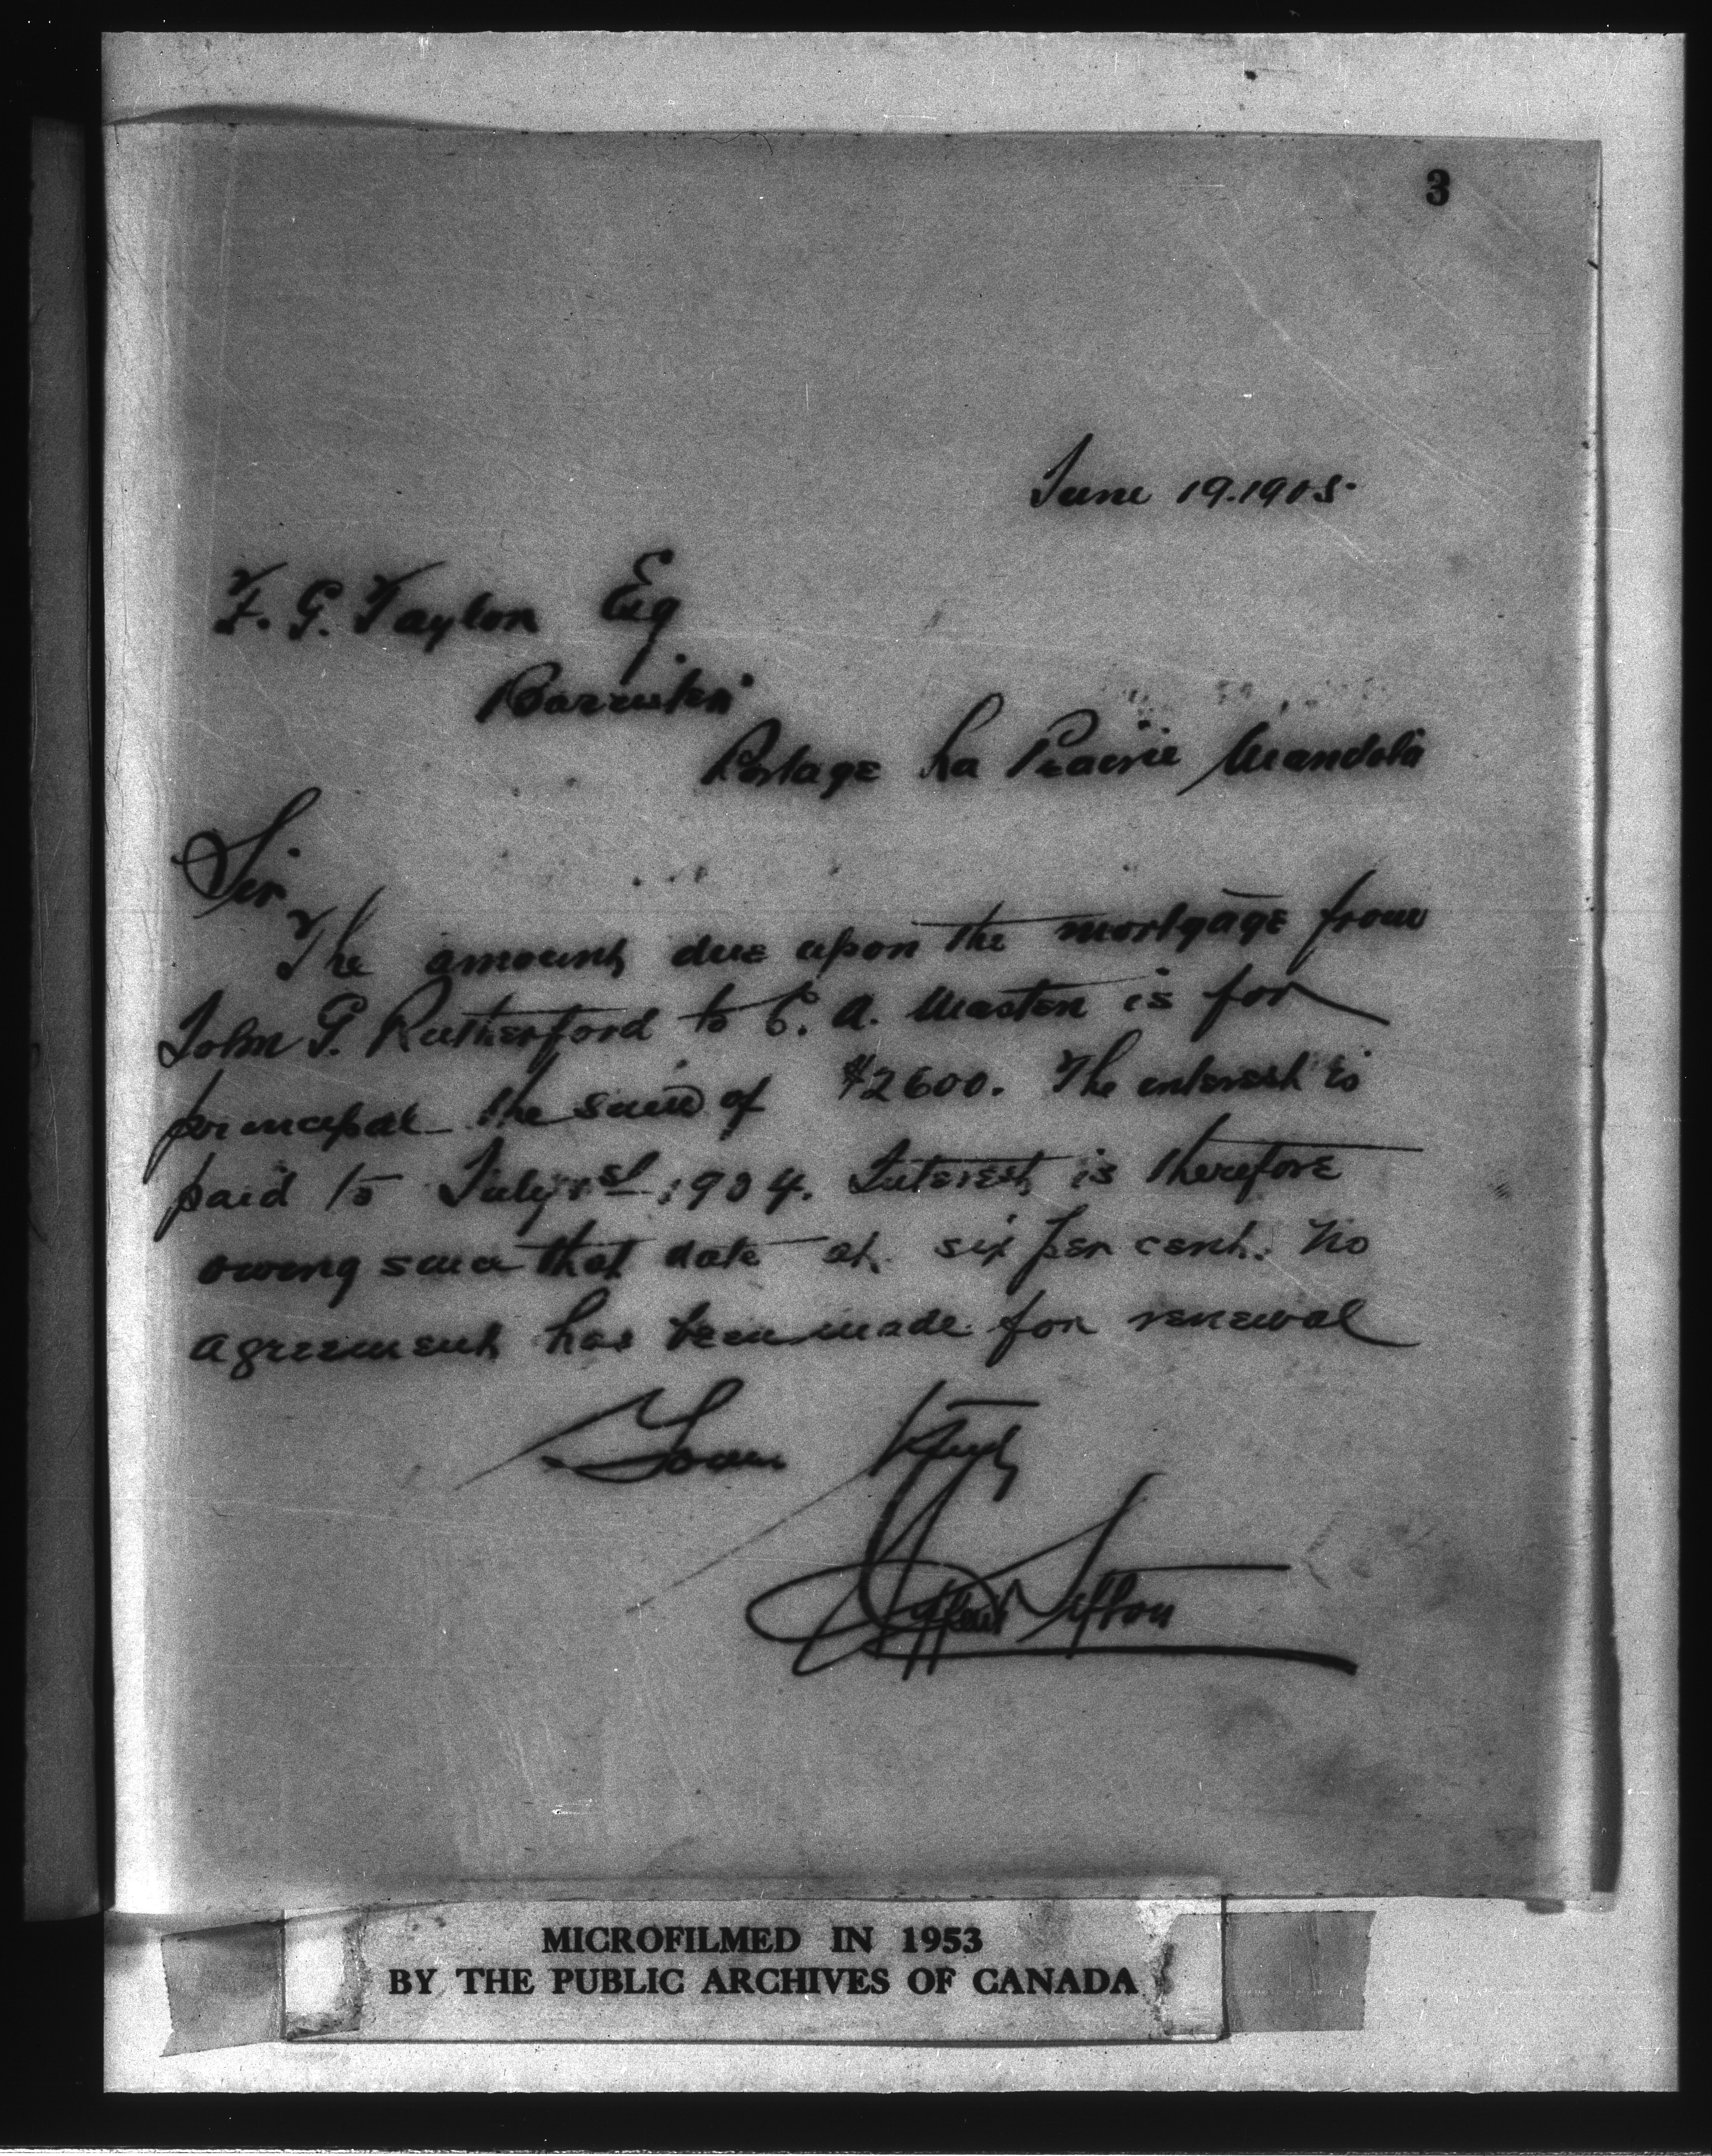 3
June 19. 1905.
F. G. Taylor Esq
Barrister
Portage La Prairie Manitoba
Sir
The amount due upon the mortgage from
John G. Rutherford to C. A. Masten is for
principal the sum of $2600. The interest is
paid to July 1st 1904. Interest is therefore
owing since that date at six per cent. No
agreement has been made for renewal
Yours truly
Clifford Sifton
MICROFILMED IN 1953
BY THE PUBLIC ARCHIVES OF CANADA